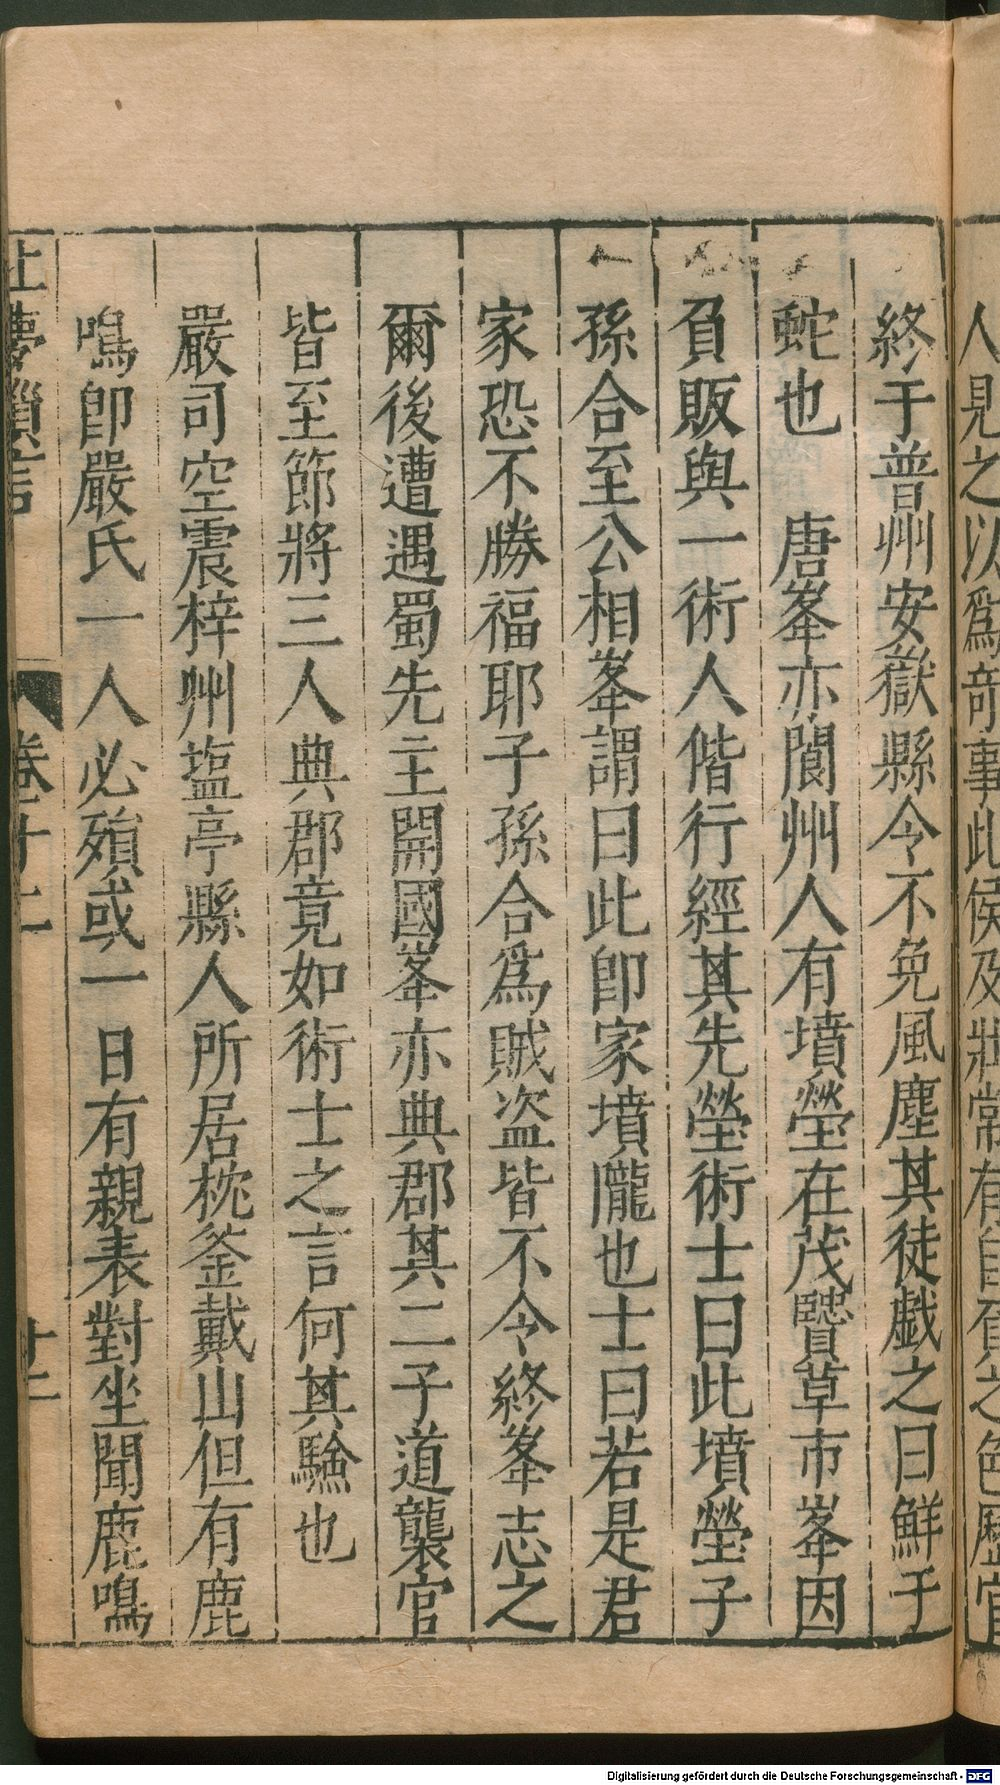 人見之以爲奇事此侯及壯常有自負之色歷官
終于普州安嶽縣令不免風塵其徒戲之曰鮮于
蛇也　唐峯亦閬州人有墳塋在茂賢草市峯因
負販與一術人偕行經其先塋術士曰此墳塋子
孫合至公相峯謂曰此卽家墳隴也士曰若是君
家恐不勝福耶子孫合爲賊盗皆不令終峯志之
爾後遭遇蜀先主開國峯亦典郡其二子道襲官
皆至節將三人典郡竟如術士之言何其驗也
嚴司空震梓州塩亭縣人所居枕釜戴山但有鹿
鳴卽嚴氏一人必殞或一日有親表對坐聞鹿鳴
夢瑣言　卷十二　十二
Digitalisierung gefördert durch die Deutsche Forschungsgemeinschaft - DFG